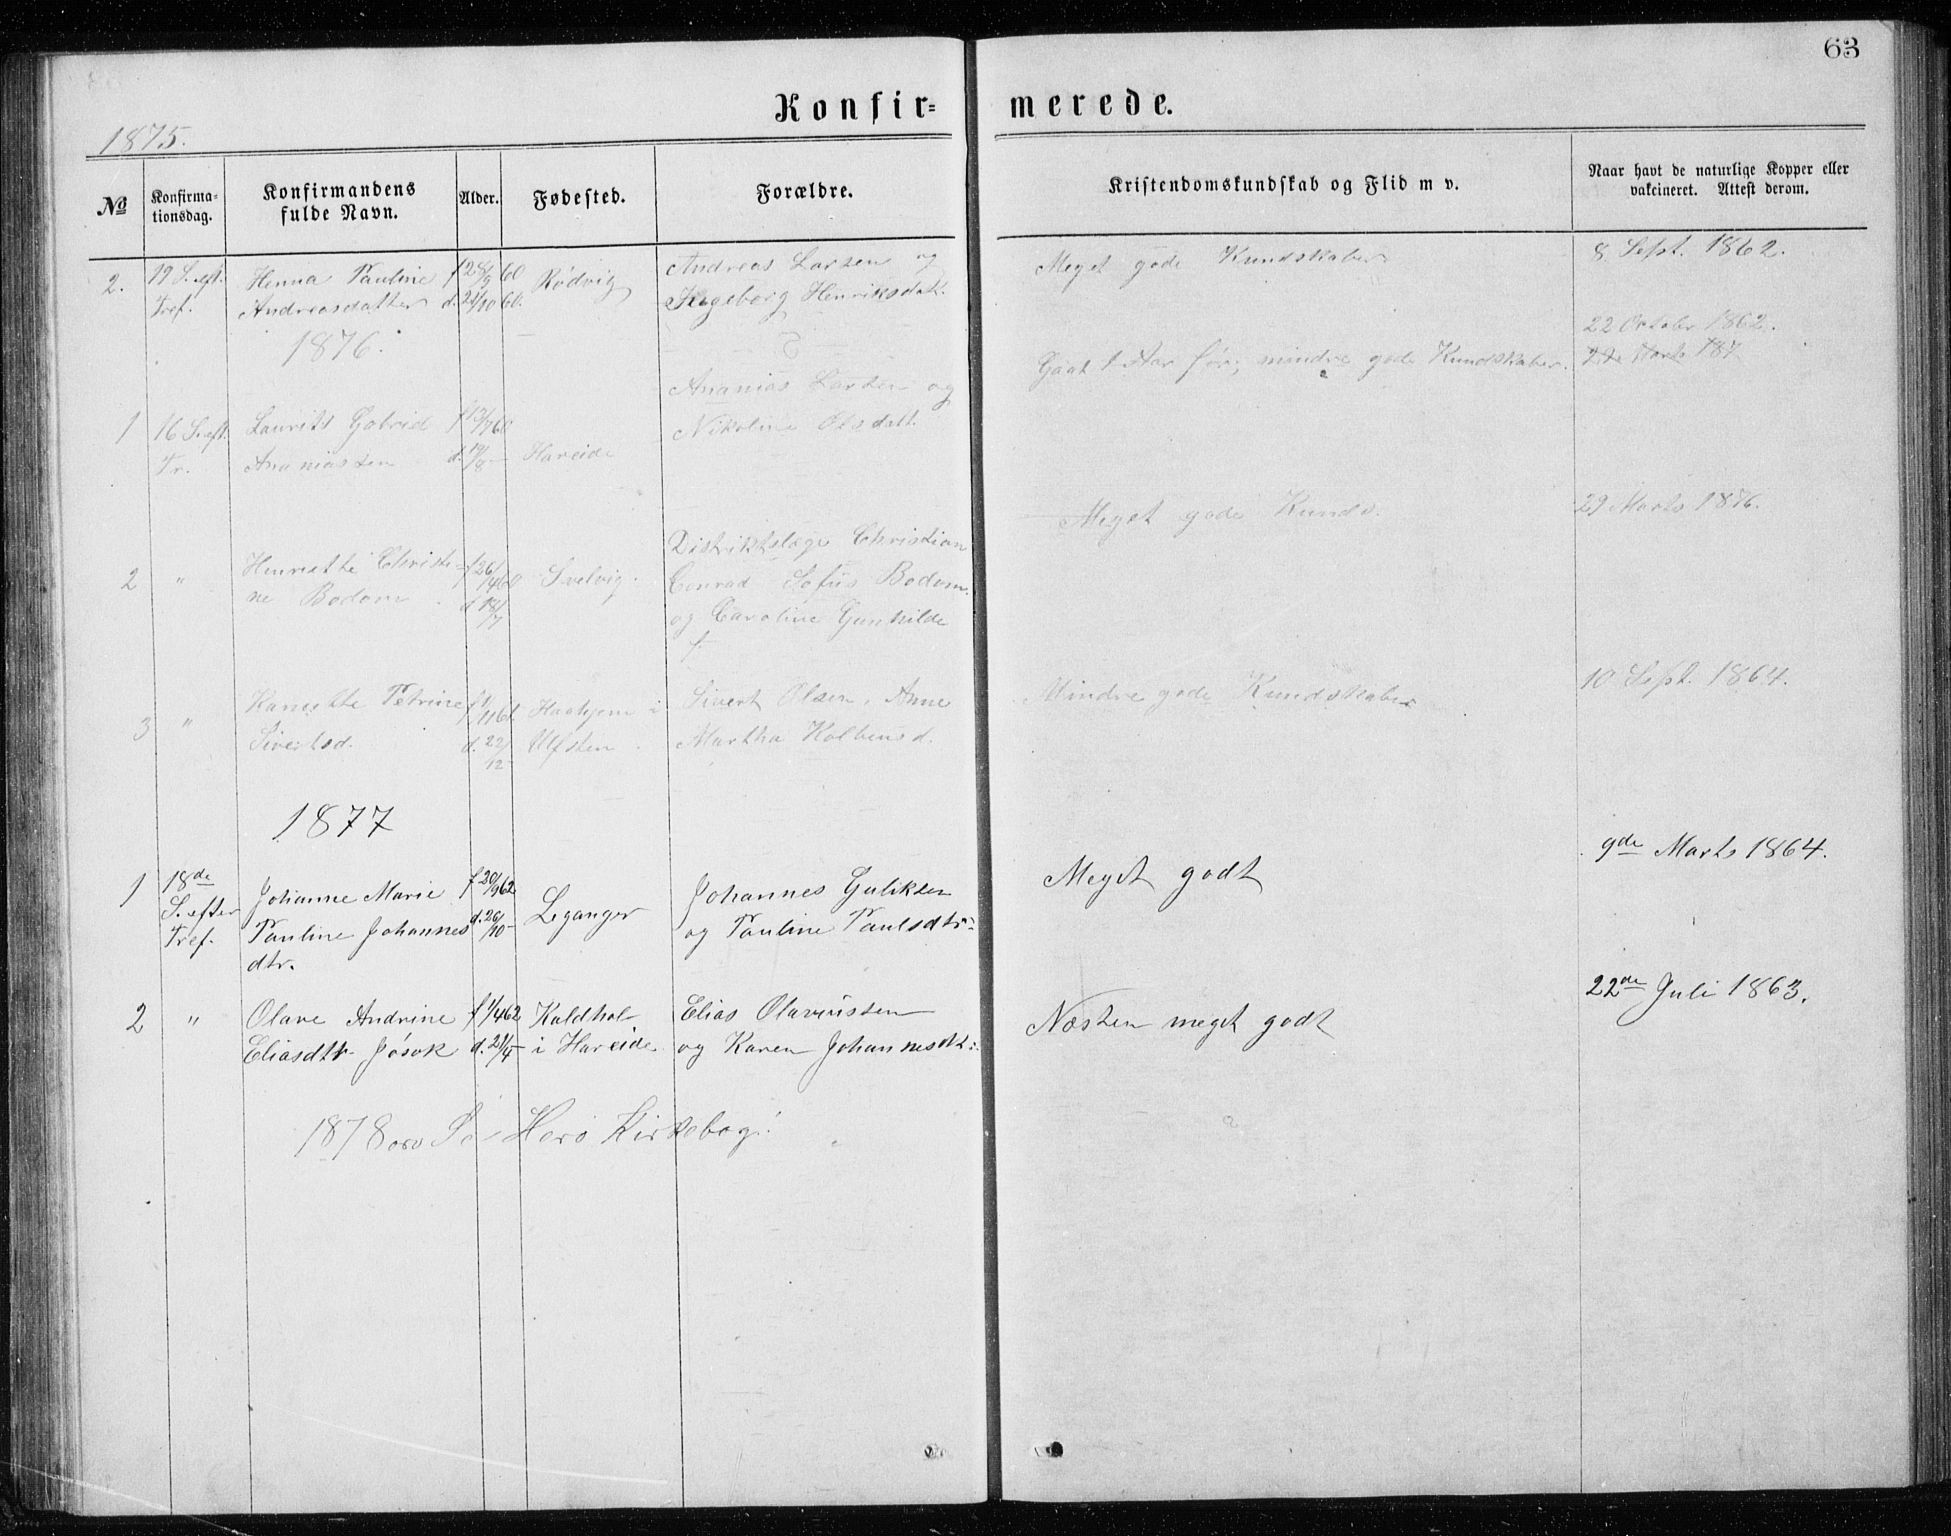 63
Konfir=
merede.
1875.
№
Konfirma-
tionsdag.
Konfirmandens
fulde Navn.
Alder.
Fødested.
Forældre.
Kristendomskundskab og Flid m v.
Naar havt de naturlige Kopper eller
vakcineret. Attest derom.
2. 19 S. eft. Henna Pauline f 28/9 60 Rødvig Andreas Larsen og Meget gode Kundskaber 8 Sept. 1862.
Tref. Andreasdatter d. 60. Ingeborg Henriksdat.
1876.
22 October 1862.
Gaat 1 Aar før; mindre gode Kundskaber.
Ananias Larsen og
1 16 S. eft. Laurits Gabriel f 13/7 60 Nikoline Olsdatt.
Tr. Ananiassen d. 19/8 – Hareide
Meget gode Kunds. 29 Marts 1876.
Distriktslæge Christian
2 " Henriette Christi- f 26/4 60 Svelvig. Conrad Sofus Bodom
ne Bodom d 18/7 og Caroline Gunhilde
f.
10 Sept. 1864.
3 " Petrine f 1/11 61 i Sivert Olsen, Anne Mindre gode Kundskaber
Sivertsd. d. 22/12 Ulfsten. Martha Kolbensd.
1877
9de Marts 1864.
1 18de Johanne Marie f 20/9 62 Leganger Johannes Guliksen Meget godt
S. efter Pauline Johannes d. 26/10 – og Pauline Paulsdtr:
Tref. dtr.
22de Juli 1863.
2 " Olave Andrine f 1/4 62 Kaldhol Elias Olaviussen Næsten meget godt
Eliasdtr. Jøsok d. 21/4 – i Hareide og Karen Johannesdt:
1878 osv Se Herø Kirkebog!